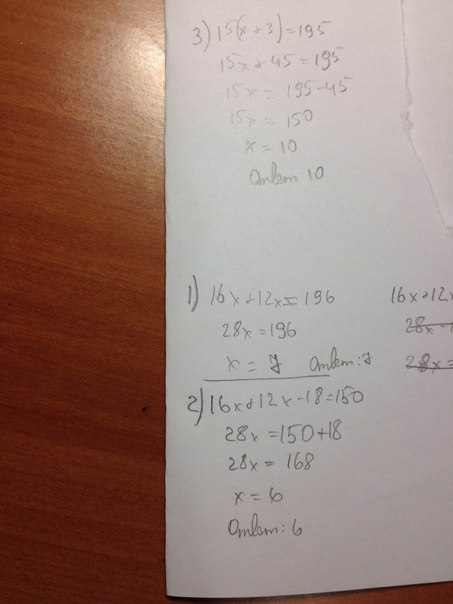 3) 15(x+3)=195
15x+45=195
15x = 195-45
15x = 150
x = 10
Ответ 10
1) 16x+12x=196
28x=196
x = 7 Ответ: 7
2) 16x+12x-18=150
28x =150+18
28x = 168
x = 6
Ответ: 6
16x+12x
28x
28x=